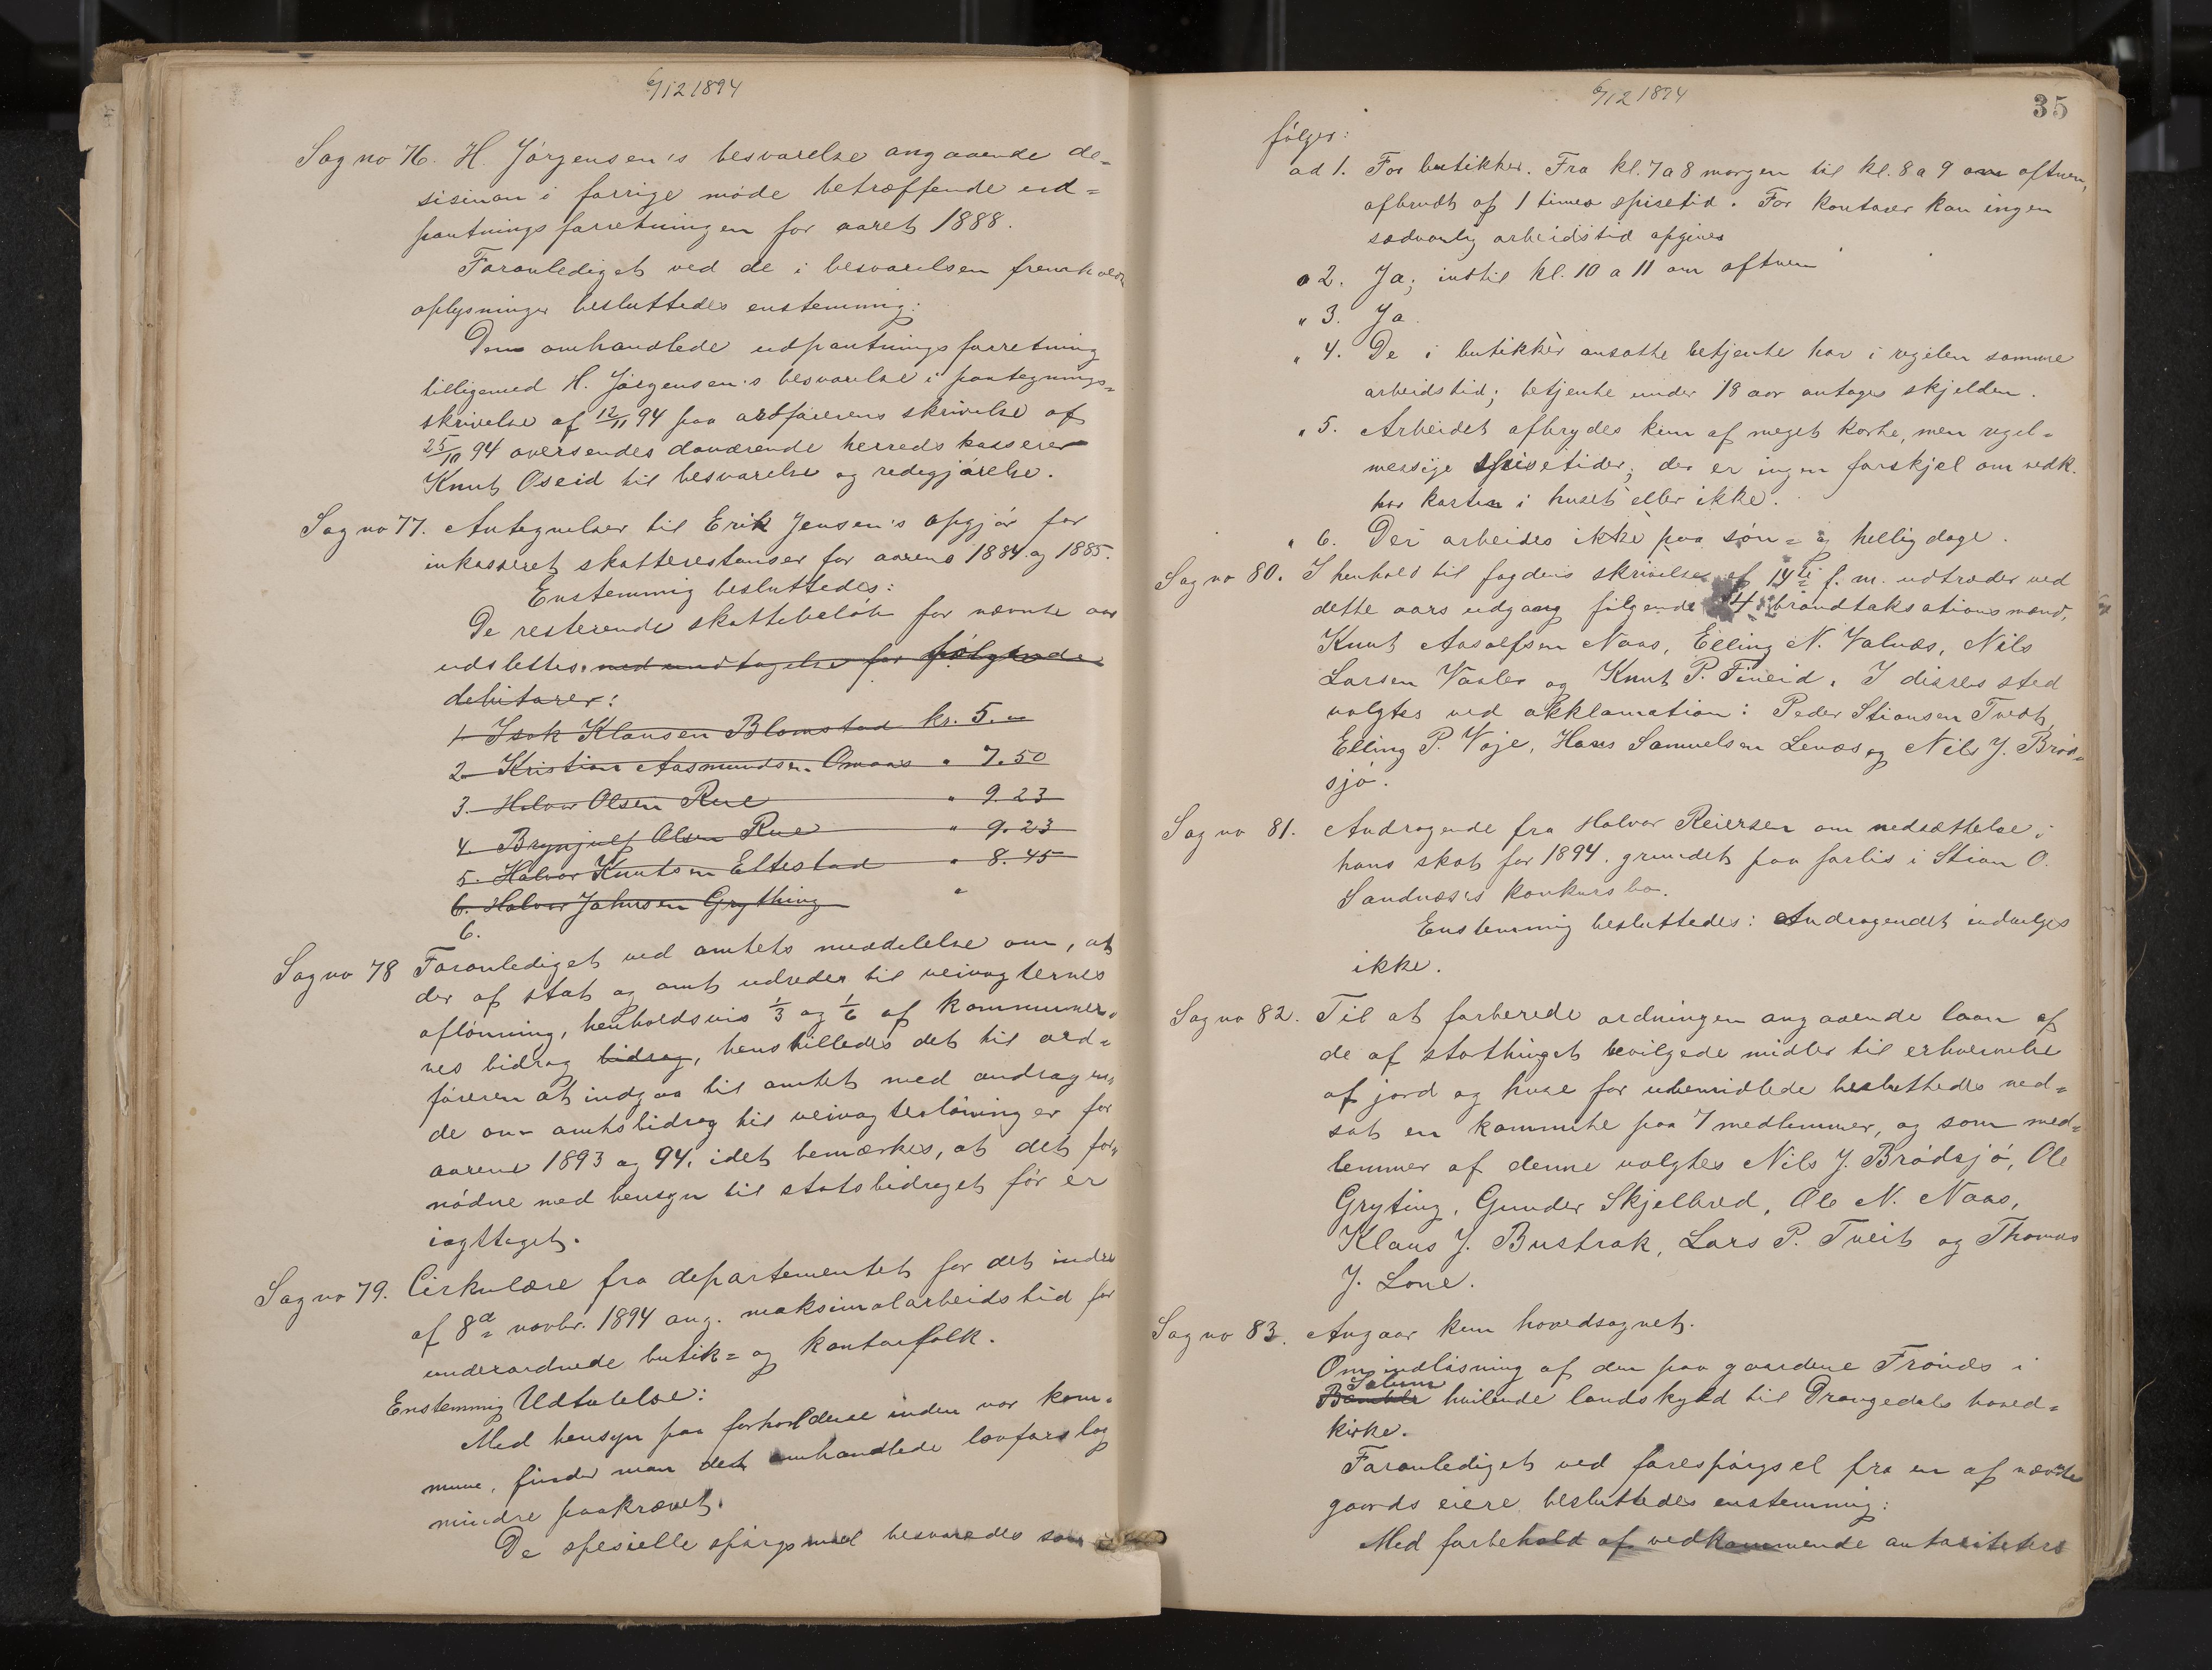 6/12 1894
Sag no 76. H. Jørgensen's besvarelse angaaende de-
sisinon i forrige møde betræffende ud=
pantningsforretningen for aaret 1888.
Foranlediget ved de i besvarelsen
oplysninger besluttedes enstemmig:
Den omhandlede udpantningsforretning
tilligemed H. Jørgensen's besvarelse i paategnings=
skrivelse af 12/11 94 paa ordførerens skrivelse af
25/10 94 oversendes daværende herredskasserer
Knut Oseid til besvarelse og redegjørelse.
Sag no 77. Antegnelser til Erik Jensen's opgjør for
inkasseret skatterestanser for aarene 1884 og 1885.
Enstemmig besluttedes:
De resterende skattebeløb for nævnte aar
udslettes. med undtagelse for følgende
debitorer:
1. Isak Klausen Blomstad kr. 5. "
2. Kristian Aasmundsen Omaas " 7.50
3. Halvor Olsen Rue " 9.23
4. Brynjulf Olsen Rue " 9.23
5. Halvor Knutsen Ettestad " 8.45
6. Halvor Johnsen Grything "
6.
Sag no 78 Foranlediget ved amtets meddelelse om, at
der af stat og amt udreder til veivogternes
aflønning, henholdsvis 1/3 og 1/6 af kommuner-
nes bidrag bidrag, henstilledes det til ord=
føreren at indgaa til amtet med andragen-
de om amtsbidrag til veivogterlønninger for
aarene 1893 og 94, idet bemærkes, at det for-
nødne med hensyn til statsbidraget før er
iagttaget.
Sag no 79. Cirkulære fra departementet for det indre
af 8de novbr. 1894 ang. maksimalarbeidstid for
underordnede butik= og kontorfolk.
Enstemmig Udtalelse:
Med hensyn paa forholdene inden vor kom-
mune, finder man det omhandlede lovforslag
mindre paakrævet.
De spesielle spørgsmaal besvaredes som
6/12 1894
35
følger:
ad 1. For butikker. Fra kl. 7 a 8 morgen til kl. 8 a 9 om aftnen,
afbrudt af 1 times spisetid. For kontorer kan ingen
sædvanlig arbeidstid opgives
" 2. Ja; indtil kl. 10 a 11 om aftnen
" 3. Ja.
" 4. De i butikker ansatte betjente har i regelen samme
arbeidstid; betjente under 18 aar antages skjelden.
" 5. Arbeidet afbrydes kun af meget korte, men regel=
messige spisetider; der er ingen forskjel om vedk.
har kosten i huset eller ikke.
" 6. Der arbeides ikke paa søn= og helligdage.
Sag no 80. I henhold til fogdens skrivelse af 14de f. m. udtræder ved
dette aars udgang følgende 4 brandtaksationsmænd,
Knut Aasolfsen Naas, Elling N. Valnæs, Nils
Larsen Vaaler og Knut P. Tineid. I disses sted
valgtes ved akklamation: Peder Stiansen Tvedt,
Elling P. Voje, Hans Samuelsen Lenæs og Nils J. Brød=
sjø.
Sag no 81. Andragende fra Halvor Reiersen om nedsættelse i
hans skat for 1894. grundet paa forlis i Stian O.
Sandnæs's konkursbo.
Enstemmig besluttedes: Andragendet indvilges
ikke.
Sag no 82. Til at forberede ordningen angaaende laan af
de af stortinget bevilgede midler til erhvervelse
af jord og huse for ubemidlede besluttedes ned=
sat en kommite paa 7 medlemmer, og som med=
lemmer af denne valgtes Nils J. Brødsjø, Ole
Gryting, Gunder Skjelbred, Ole N. Naas,
Klaus J. Bustrak, Lars P. Tveit og Thomas
J. Lone.
Sag no 83. Angaar kun hovedsognet.
Om indløsning af den paa gaardene Frønæs i
Solum
Bamble hvilende landskyld til Drangedals hoved=
kirke.
Foranlediget ved forespørgsel fra en af nævnte
gaards eiere besluttedes enstemmig:
Med forbehold af vedkommende autoriteters